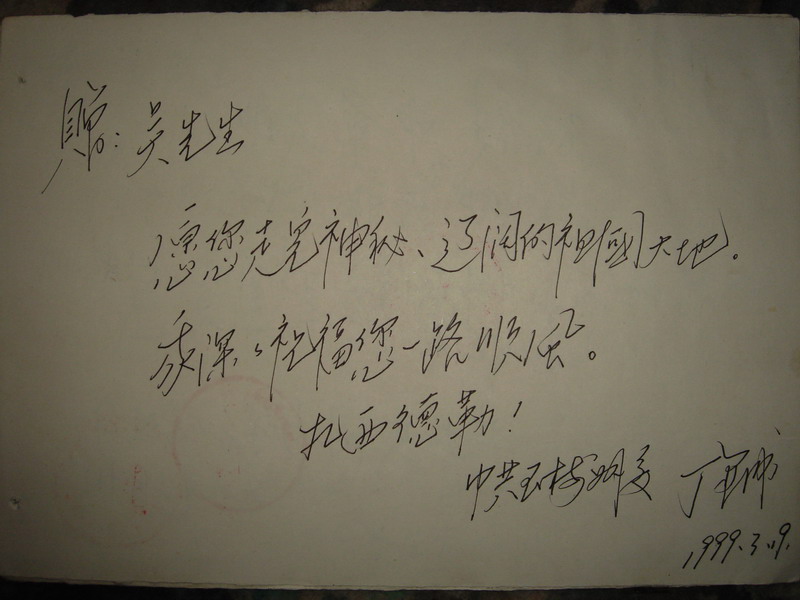 贈:吴先生
愿您走完神秘、辽阔的祖國大地。
我深々祝福您一路顺风。
扎西德勒!
中共玉树州委
1999.3.19.